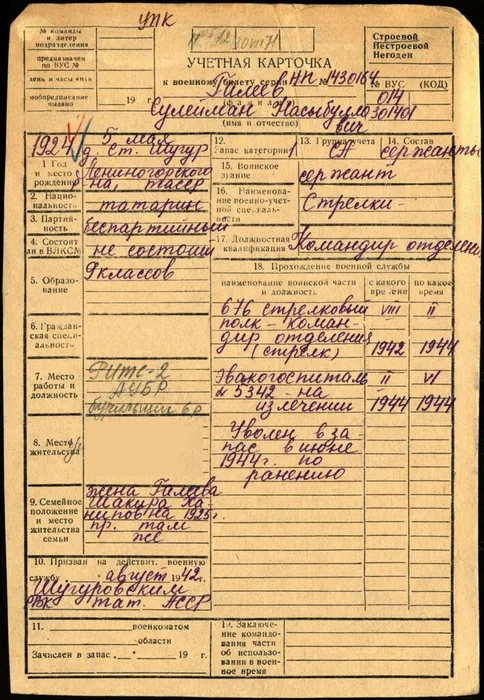 УПК
№ команды
и литер
подразделения
предназначен
по ВУС №
день и часы явки
мобпредписание
выдано
Строевой
Нестроевой
Негоден
УЧЕТНАЯ КАРТОЧКА
к военному билету серии НП № 1430184
Галеев
19 г. (фамилия)
Сулейман Насыбулло
вич
(имя и отчество)
№ ВУС (КОД)
014
301401
1924 5 мая
д. ст. Шугур
1 Год
и место
рождения
Лениногорского
р-на, тасср
2. Нацио-
нальность
татарин
3. Партий-
ность
беспартийный
4. Состоит
ли в ВЛКСМ
не состоит
5. Образо-
вание
9 классов
6. Граждан-
ская специ-
альность
7. Место
работы и
должность
РИТС-2
АУБР
бурильщик 6 р
8. Место
жительства
9. Семейное
положение
и место
жительства
семьи
жена Галеева
Шакира Ха
ниповна 1925 г.
пр. там
же
10. Призван на действит. военную
службу август 1942 г.
Шугуровским
РВК тат. АССР
11. военкоматом
области
Зачислен в запас „ “ 19 г.
12.
запас категории 1
13. Группа учета
СА
14. Состав
сержанты
15. Воинское
звание
сержант
16. Наименование
военно-учет-
ной специаль-
ности
Стрелки-
17. Должностная
квалификация
Командир отделения
18. Прохождение военной службы
наименование воинской части
и должность
с какого
времени
по какое
время
676 стрелковый VIII II
полк - коман-
дир отделения
(стрелк) 1942 1944
Эвакогоспиталь II VI
№ 5342 - на
излечении 1944 1944
Уволен в за
пас в июне
1944 г. по
ранению
19. Заключение
командова-
ния части
об использо-
вании в воен-
ное время